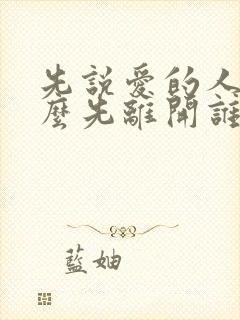 先說愛的人
麼先離開誰
藍妯